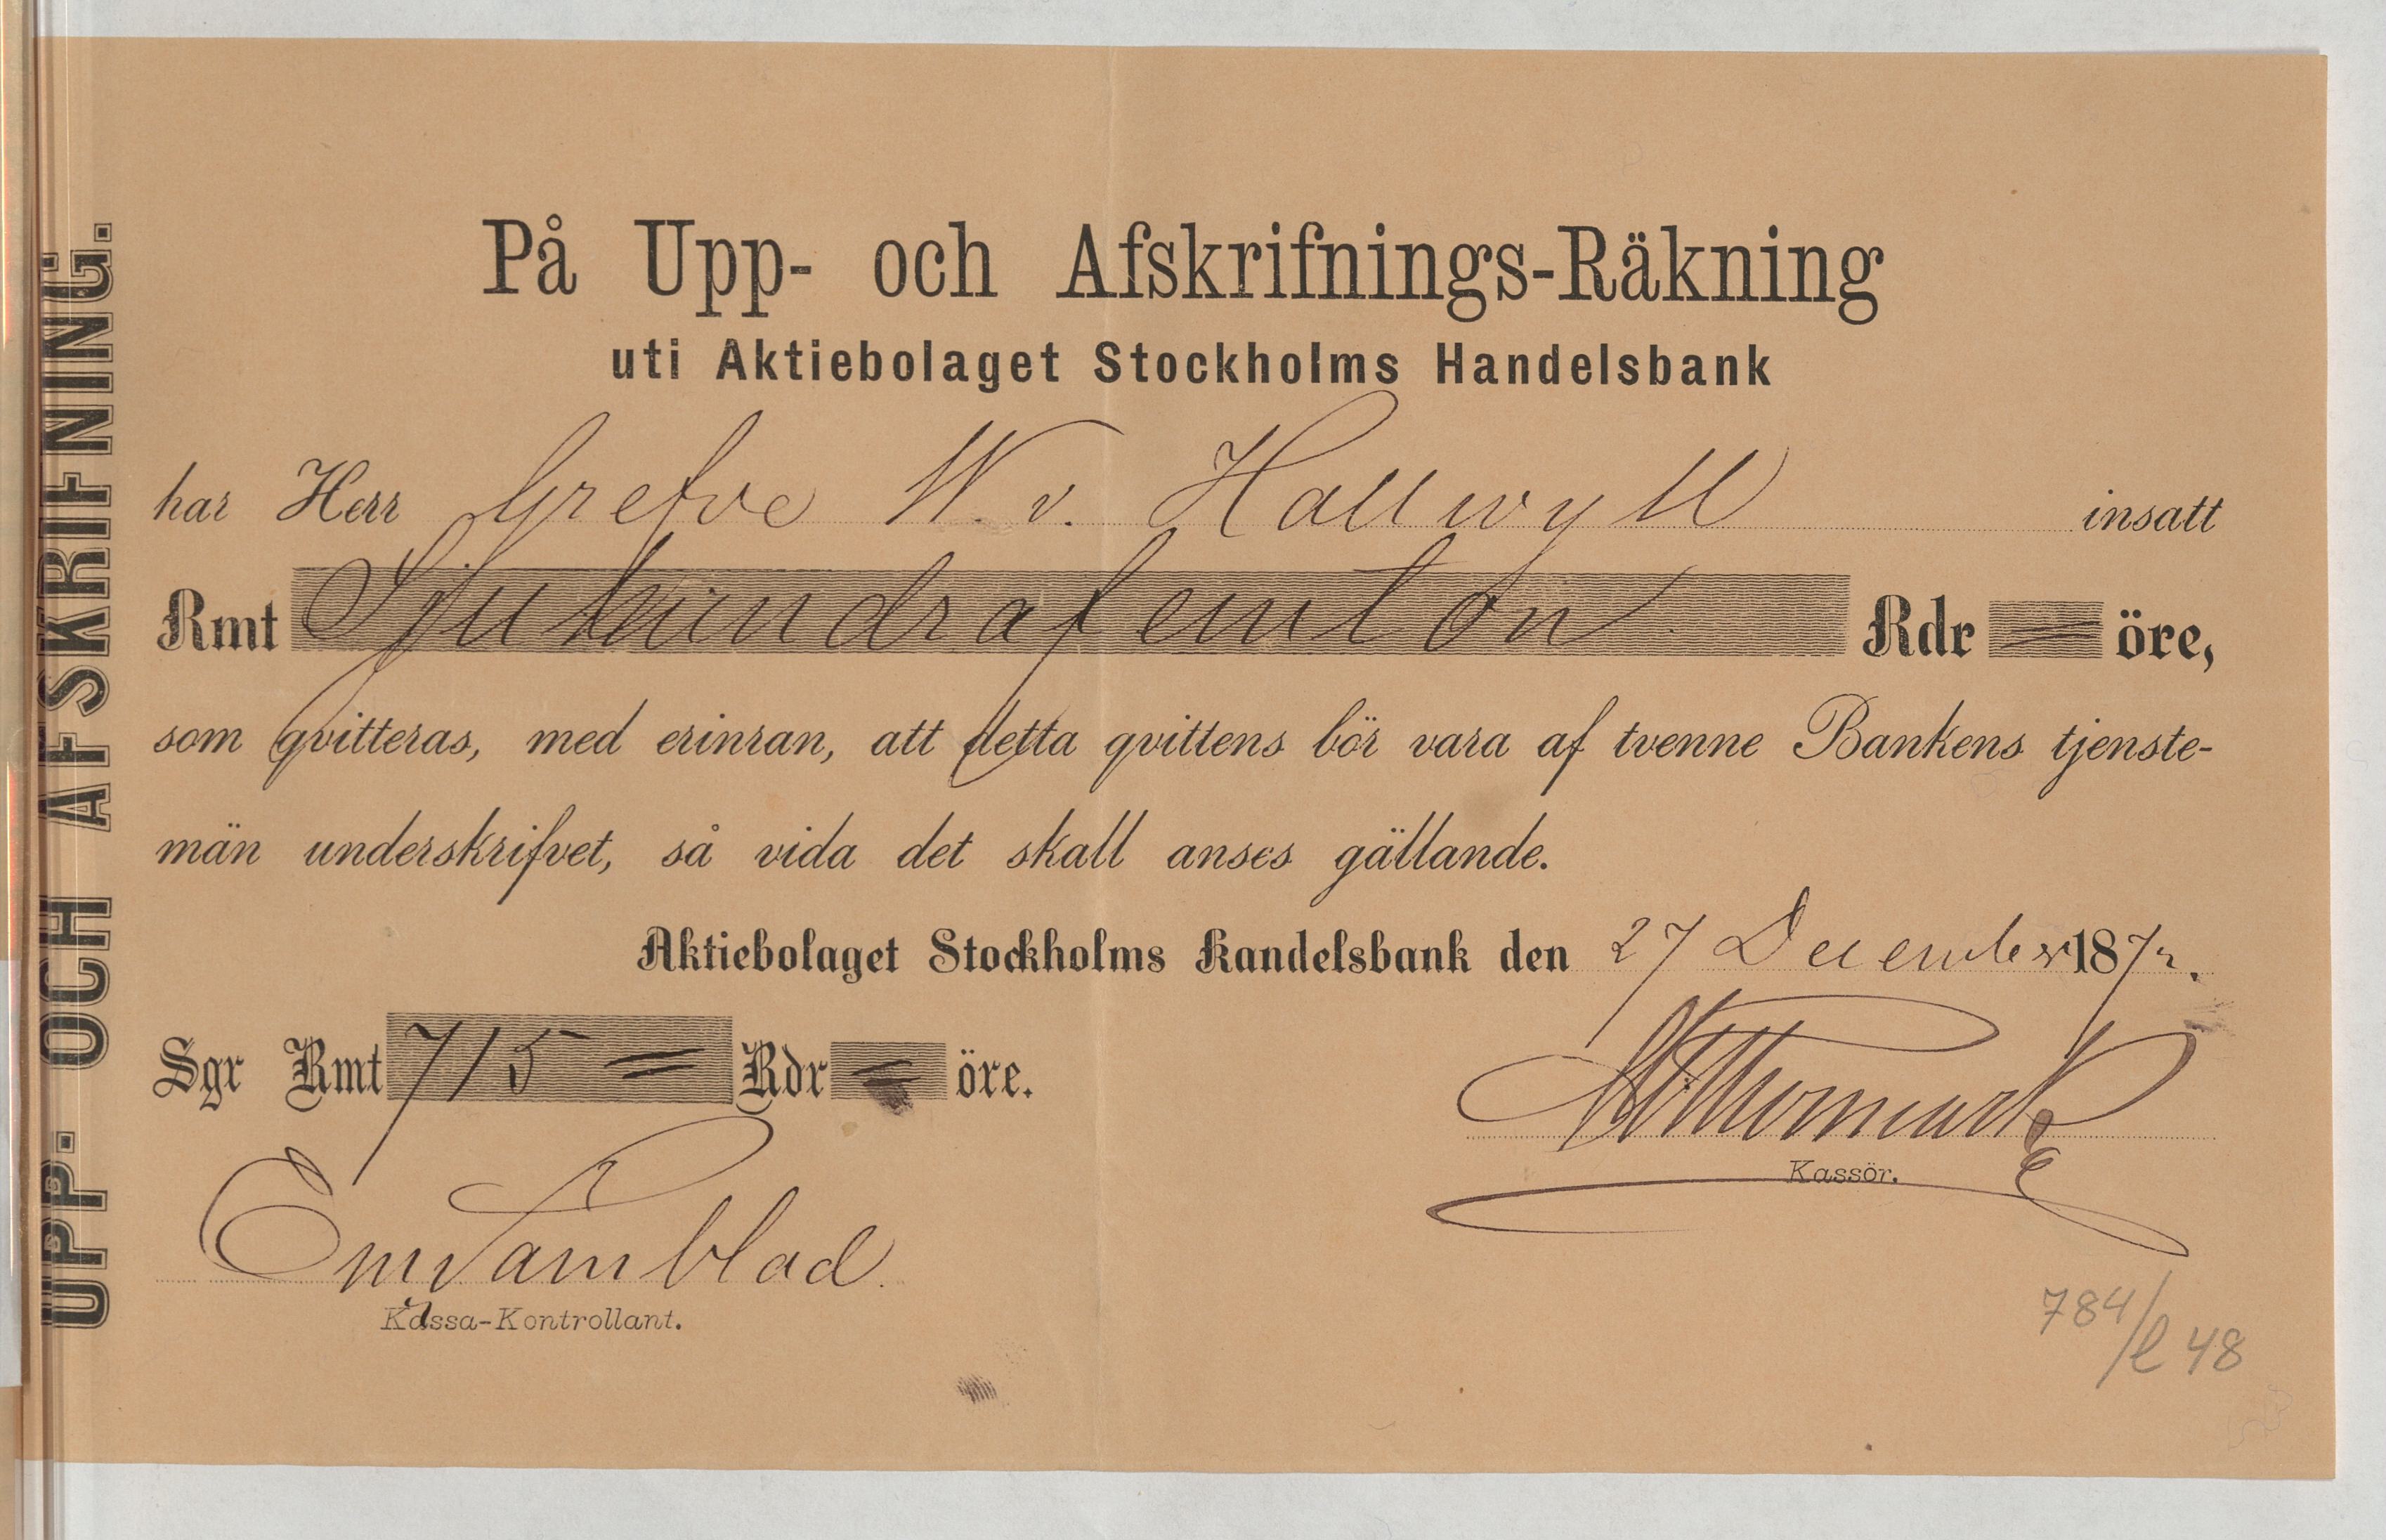 UPP- OCH AFSKRIFNING.
På Upp- och Afskrifnings-Räkning
uti Aktiebolaget Stockholms Handelsbank
har Herr Grefve W. v. Hallwyll insatt
Rmt Sjuhundrafemton Rdr = öre,
som qvitteras, med erinran, att detta qvittens bör vara af tvenne Bankens tjenste-
män underskrifvet, så vida det skall anses gällande.
Aktiebolaget Stockholms Handelsbank den 27 December 1872.
Sgr Rmt 715 = Rdr = öre.
Kassör.
Kassa-Kontrollant.
784/l 48